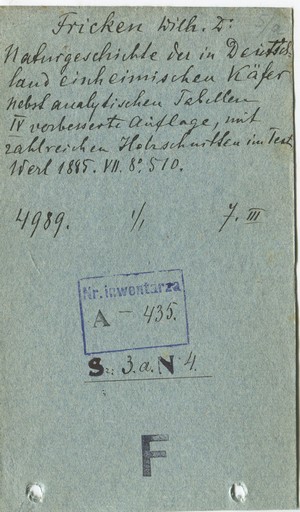 Fricken Wilh. Dr
Naturgeschichte der in Deutsch-
land einheimischen Käfer
nebst analytischen Tabellen
IV verbesserte Auflage, mit
zahlreichen Holzschnitten im Text
Werl 1885. VII. 8º 510.
4989. 1/1 7. III
Nr. inwentarza
A — 435.
S.: 3.a. N 4.
F